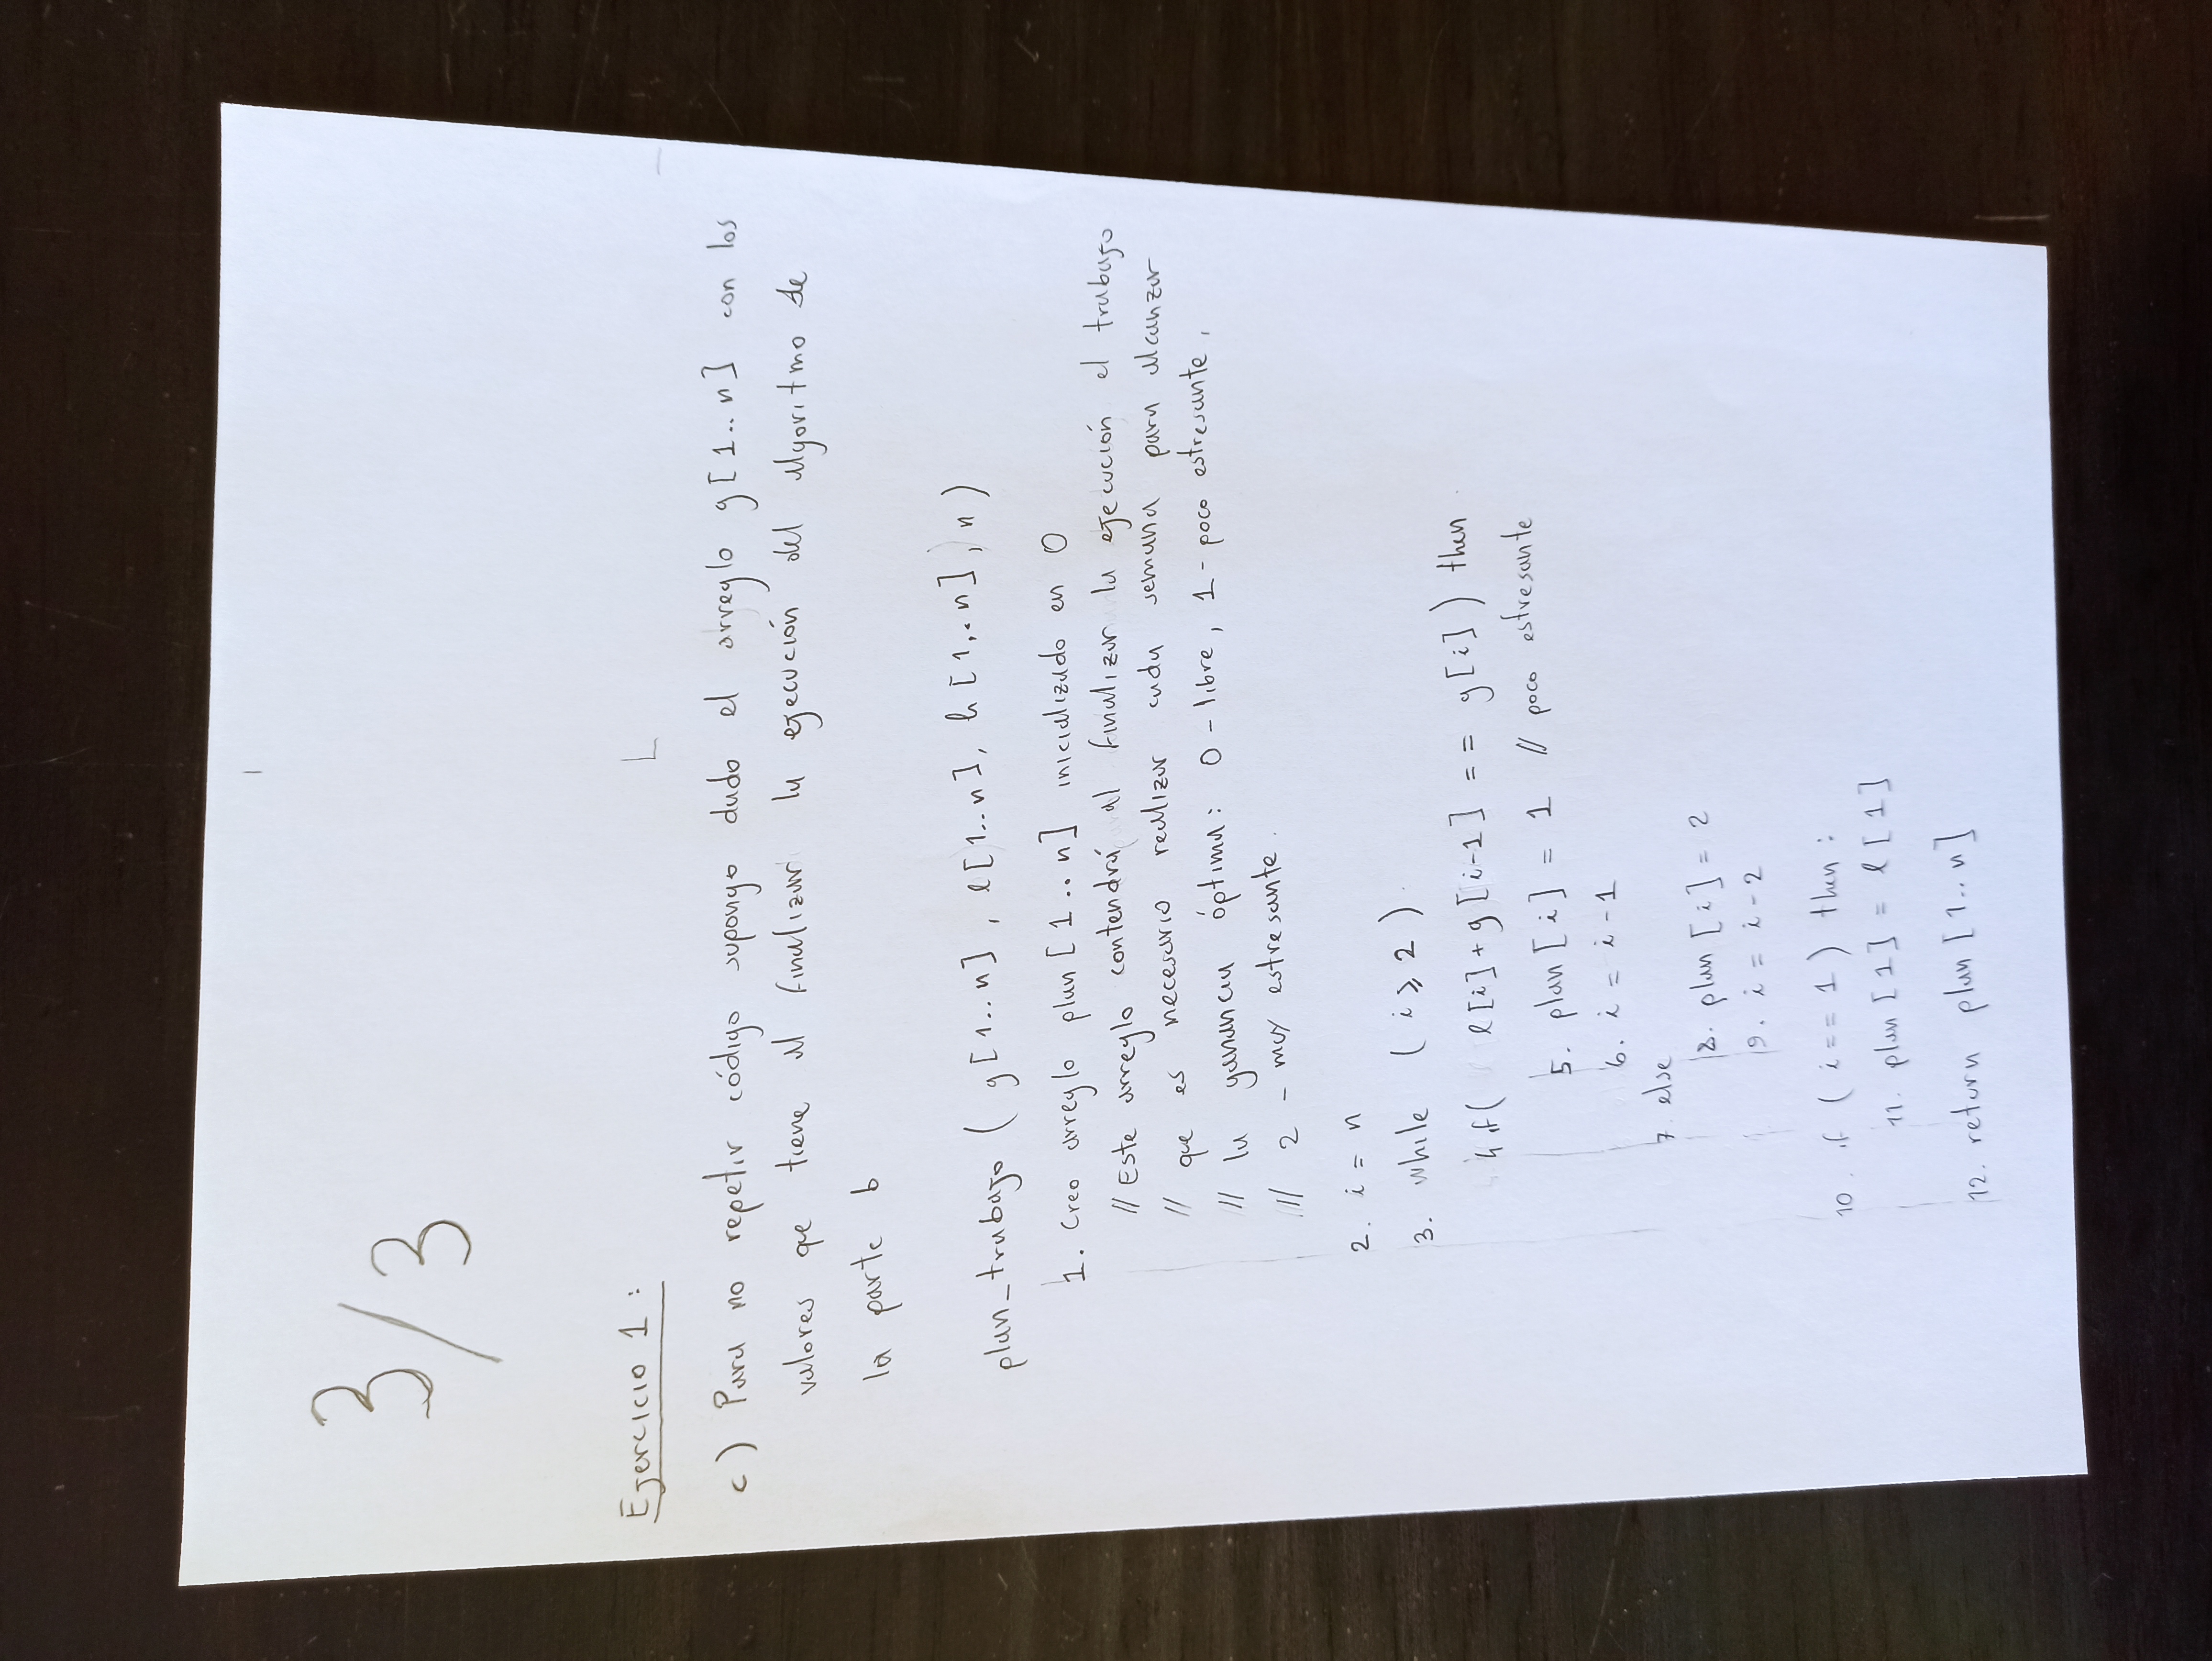 3/3
Ejercicio 1:
c) Para no repetir código supongo dado el arreglo g[1..n] con los
valores que tiene al finalizar la ejecución del algoritmo de
la parte b
plan_trabajo (g[1..n], l[1..n], h[1..n], n)
1. Creo arreglo plan[1..n] inicializado en 0
// Este arreglo contendrá al finalizar la ejecución el trabajo
// que es necesario realizar cada semana para alcanzar
// la ganancia óptima: 0-libre, 1-poco estresante,
// 2-muy estresante.
2. i = n
3. while (i ≥ 2)
4. if (l[i]+g[i-1] == g[i]) then
5. plan[i] = 1 // poco estresante
6. i = i-1
7. else
8. plan[i] = 2
9. i = i-2
10. if (i == 1) then:
11. plan[1] = l[1]
12. return plan[1..n]